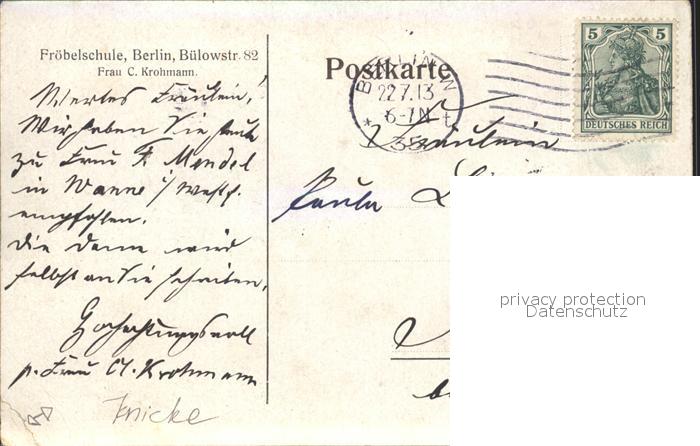 Fröbelschule, Berlin, Bülowstr. 82
Frau C. Krohmann.
Postkarte
BERLIN
22.7.13
6-7N
5 5
DEUTSCHES REICH
Wertes Fräulein!
Wir haben Sie heute
zu Frau F. Mendel
in Wanne i/Westf.
empfohlen.
Die Dame wird
selbst an Sie schreiben.
Hochachtungsvoll
p. Frau Cl. Krohmann
Knicke
Fräulein
Paula
privacy protection
Datenschutz